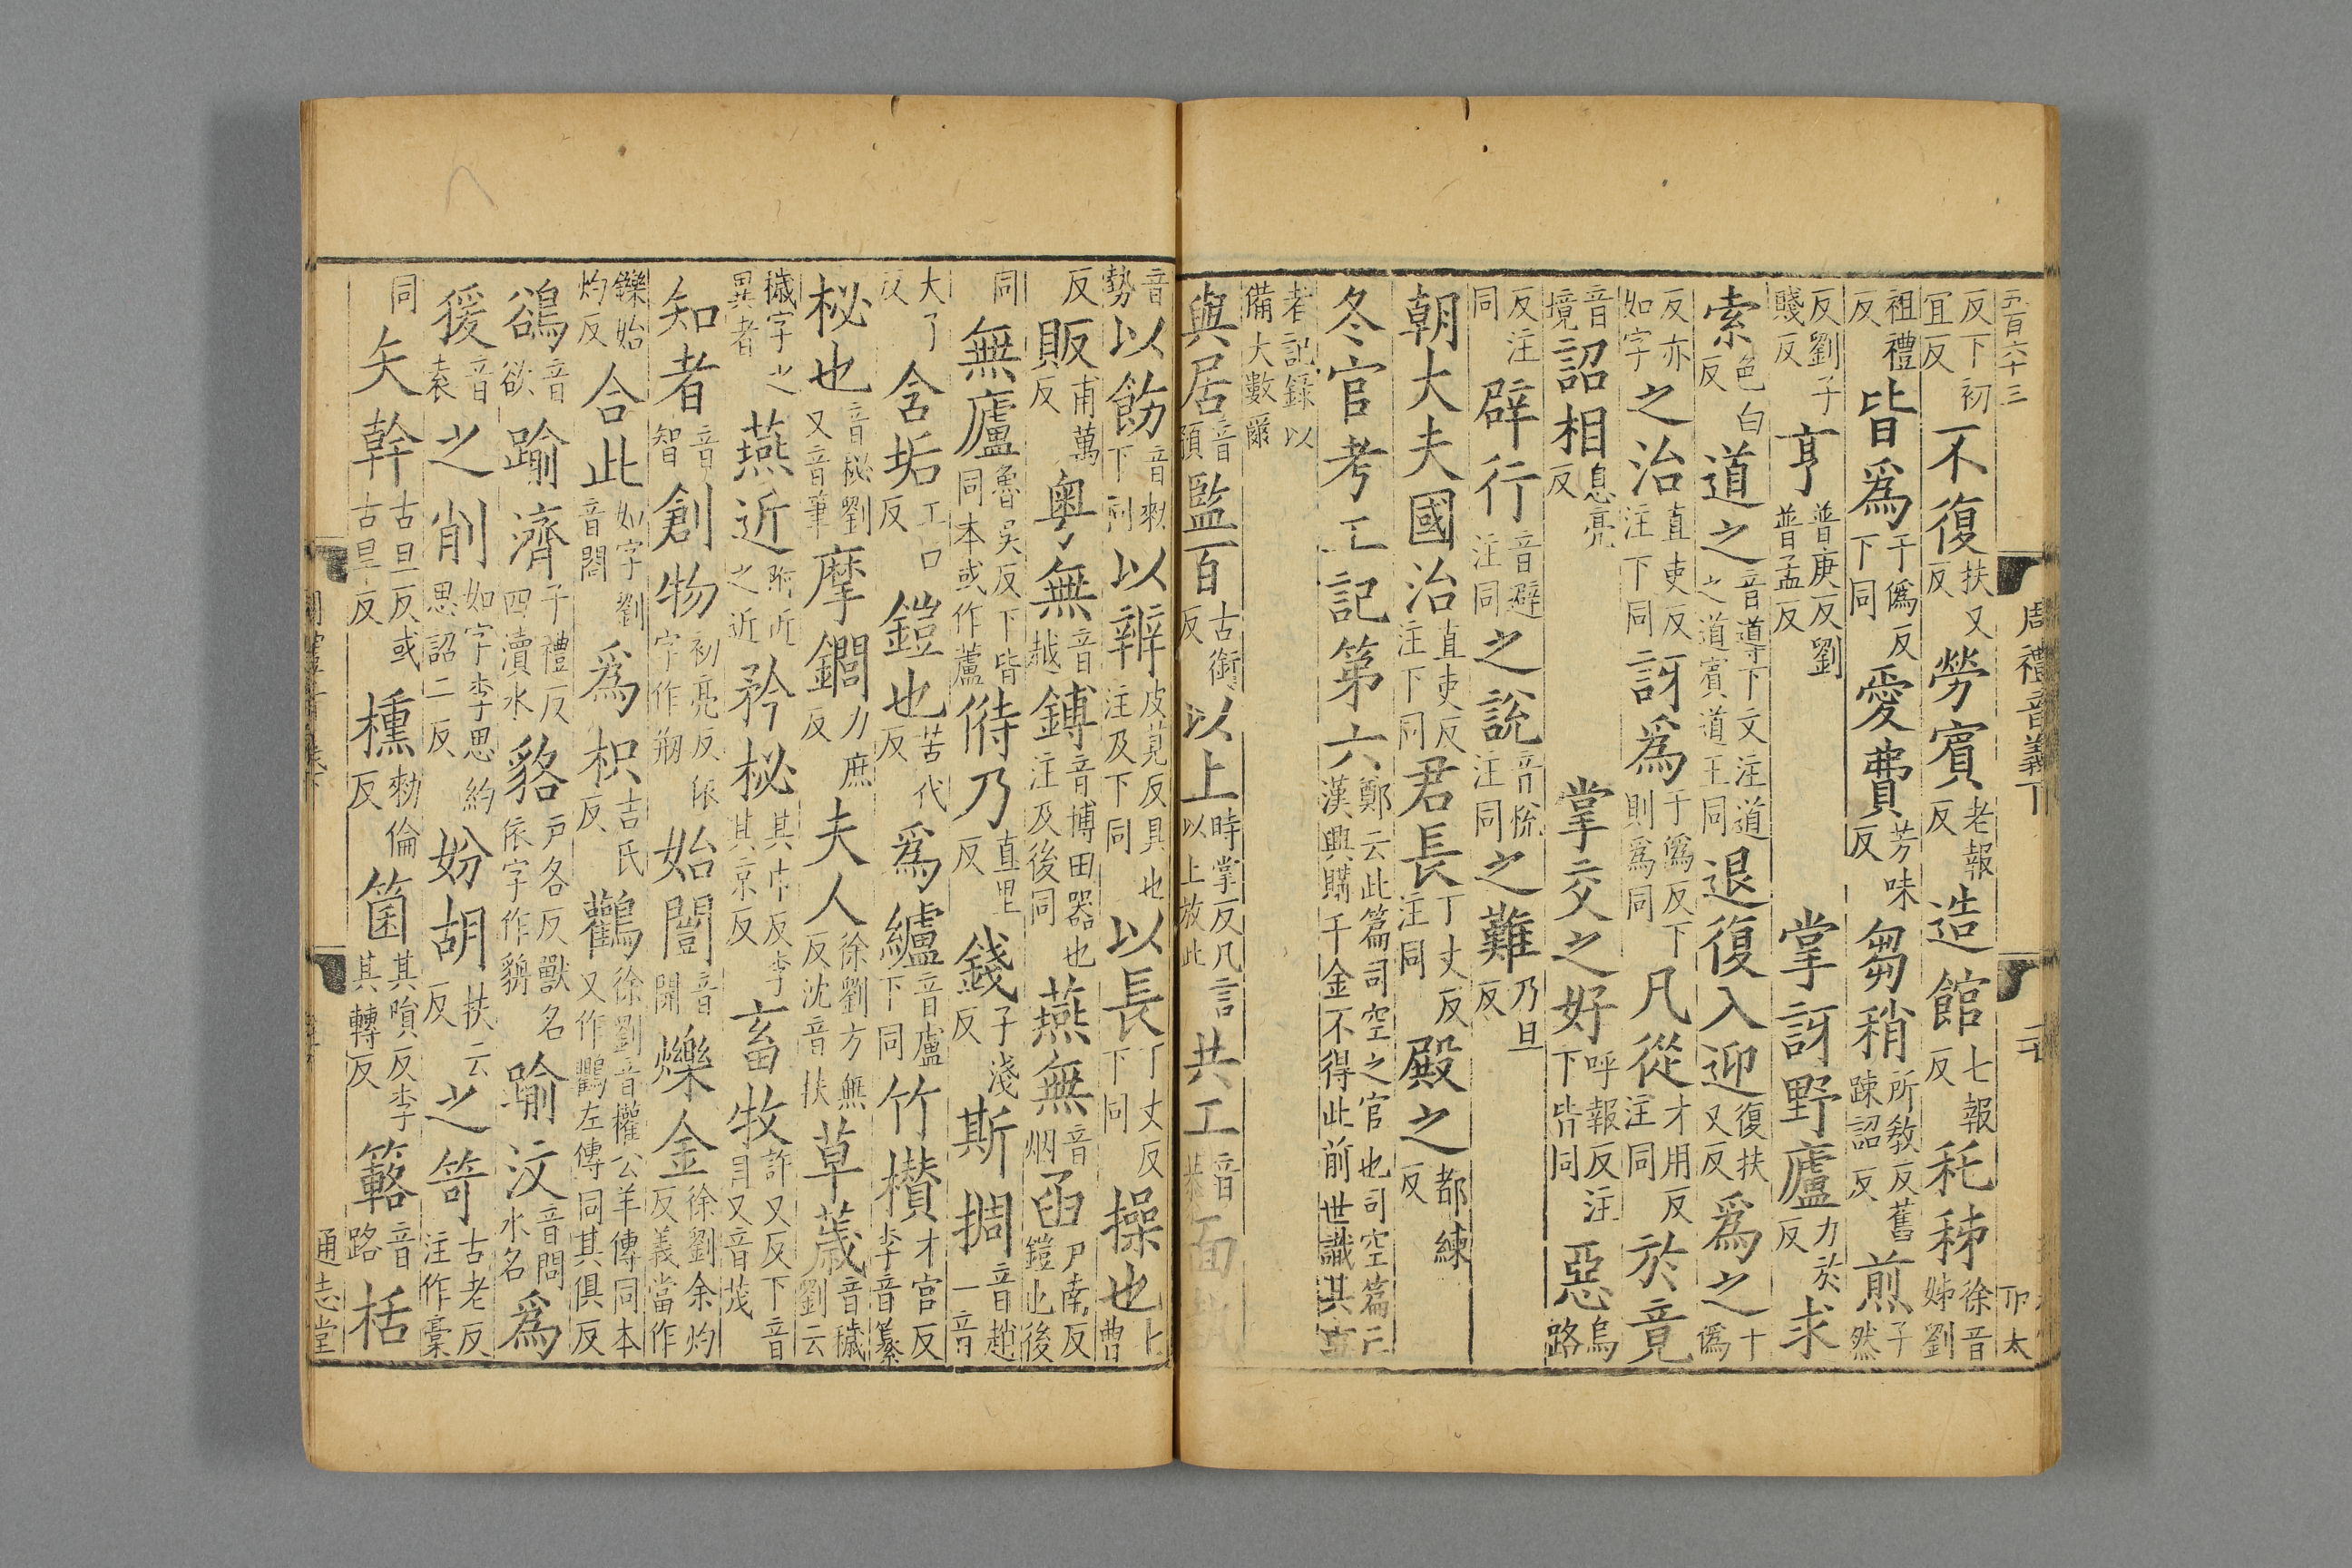 五百六十三
周禮音義下
反下初宜反不復扶又反勞賓老報反造館七報反秏秭徐音姊劉
祖禮反皆爲于僞反下同愛費芳味反芻稍所敎反舊踈詔反煎子然
反劉子賤反亨普庚反劉普孟反掌訝野廬力於反求
索色白反道之音導下文注道之道賓道王同退復入迎復扶又反爲之于僞
反亦如字之治直吏反注下同訝爲于僞反下則爲同凡從才用反注同於竟
音境詔相息亮反掌交之好呼報反注下皆同惡烏路
反注同辟行音避注同之說音悅注同之難乃旦反
朝大夫國治直吏反注下同君長丁丈反注同殿之都練反
冬官考工記第六鄭云此篇司空之官也司空篇亡漢興購千金不得此前世識其
者記錄以備大數爾
與居音預監百古銜反以上時掌反凡言以上放此共工音恭面
音勢以飭音勑下同以辨皮莧反具也注及下同以長丁丈反下同操也七曹
反販甫萬反粤無音越鎛音博田器也注及後同燕無音烟函戸南反鎧也後
同無廬魯吳反下皆同本或作蘆偫乃直里反錢子淺反斯㨄音趙一音
大了反含垢工口反鎧也苦代反爲纑音盧下同竹欑才官反李音纂
柲也音祕劉又音筆摩鐗力庶反夫人徐劉方無反沈音扶草薉音穢劉云
穢字之異者燕近附近之近矜柲其巾反李其京反畜牧許又反下音目又音茂
知者音智創物初亮反依字作刱始闓音開爍金徐劉余灼反義當作
鑠始灼反合此如字劉音閤爲枳吉氏反鸜徐劉音權公羊傳同本又作鸛左傳同其俱反
鵒音欲踰濟子禮反四瀆水貉戸各反獸名依字作貈踰汶音問水名爲
猨音袁之削如字李思約思詔二反妢胡扶云反之笴古老反注作稾
同矢幹古旦反或古旱反櫄勑倫反箘其隕反李其轉反簵音路栝
通志堂